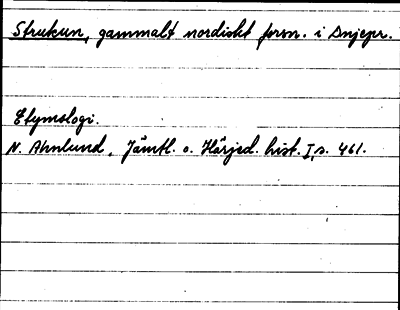 Strukun, gammalt nordiskt forsn. i Dnjepr.
Etymologi.
N. Ahnlund, Jämtl. o. Härjed. hist. I, s. 461.